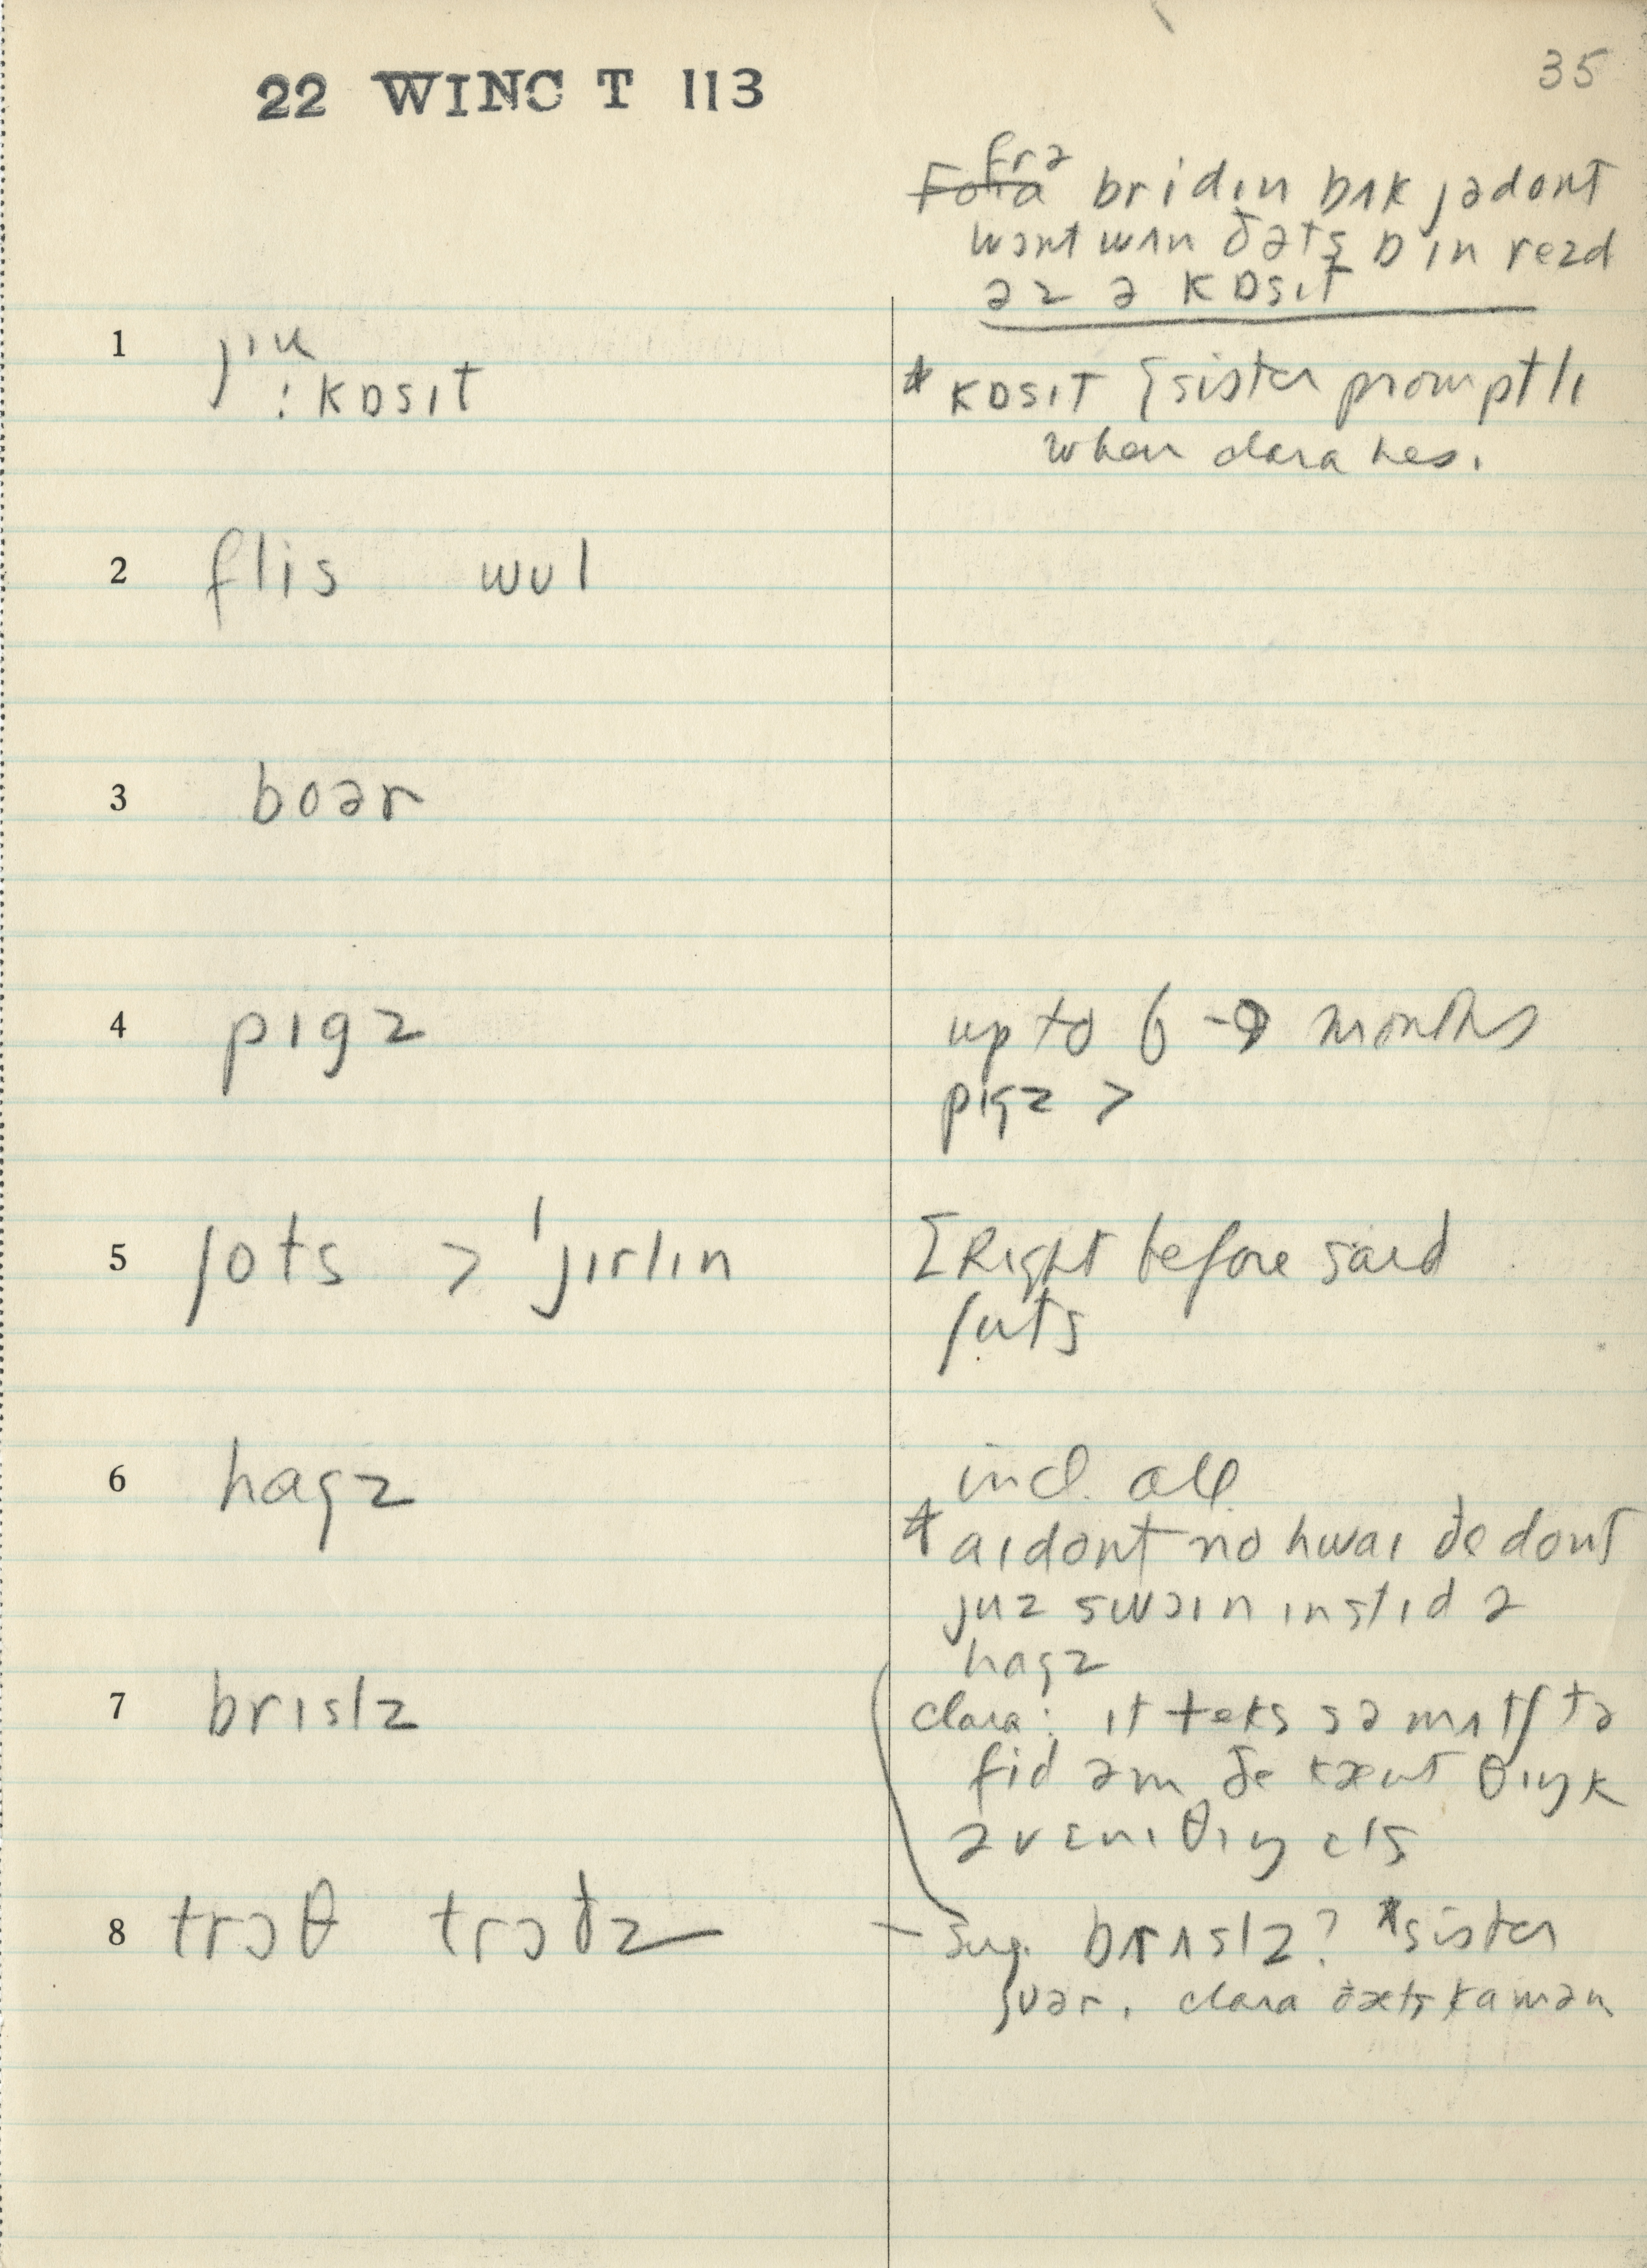 22 WINC T 113
35
frə
bridɪn bʌk jədont
wɔnt wʌn ðəts bɪn rezd
əz ə kɒsɪt
1 ju
: kɒsɪt
* kɒsɪt { sister promptli
when clara hes.
2 flis wʊl
3 boər
4 pɪgz
up to 6-9 months
pɪgz >
5 ʃots > ˈjɪrlɪn
[Right before said
ʃuts
6 hagz
incl. all
* aɪ dont no hwaɪ ðe dont
juz swaɪn ɪnstɪd ə
hagz
7 brɪslz
clara: ɪt teks sə mʌtʃ tə
fid əm ðe kænt θɪŋk
əv ɛnɪ θɪŋ ɛls
8 trɔθ trɔðz
– sug. brʌslz? *sister
ʃʊər. clara ðæts kamən